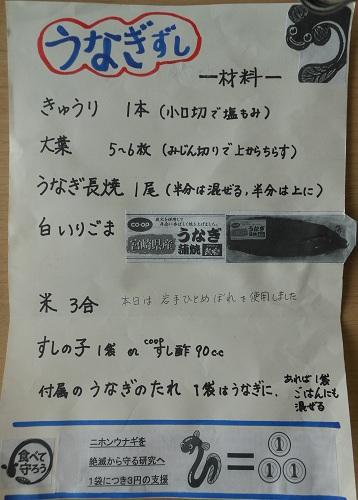 うなぎずし
ー材料ー
きゅうり 1本 (小口切で塩もみ)
大葉 5~6枚 (みじん切りで上からちらす)
うなぎ長焼 1尾 (半分は混ぜる,半分は上に)
白いりごま
CO・OP
宮崎県産
うなぎ
蒲焼
米 3合 本日は 岩手ひとめぼれを使用しました
すしの子 1袋 or coopすし酢 90cc
付属の うなぎのたれ 1袋はうなぎに、あれば1袋
ごはんにも
混ぜる
食べて
守ろう
ニホンウナギを
絶滅から守る研究へ
1袋につき3円の支援
= ①
①①